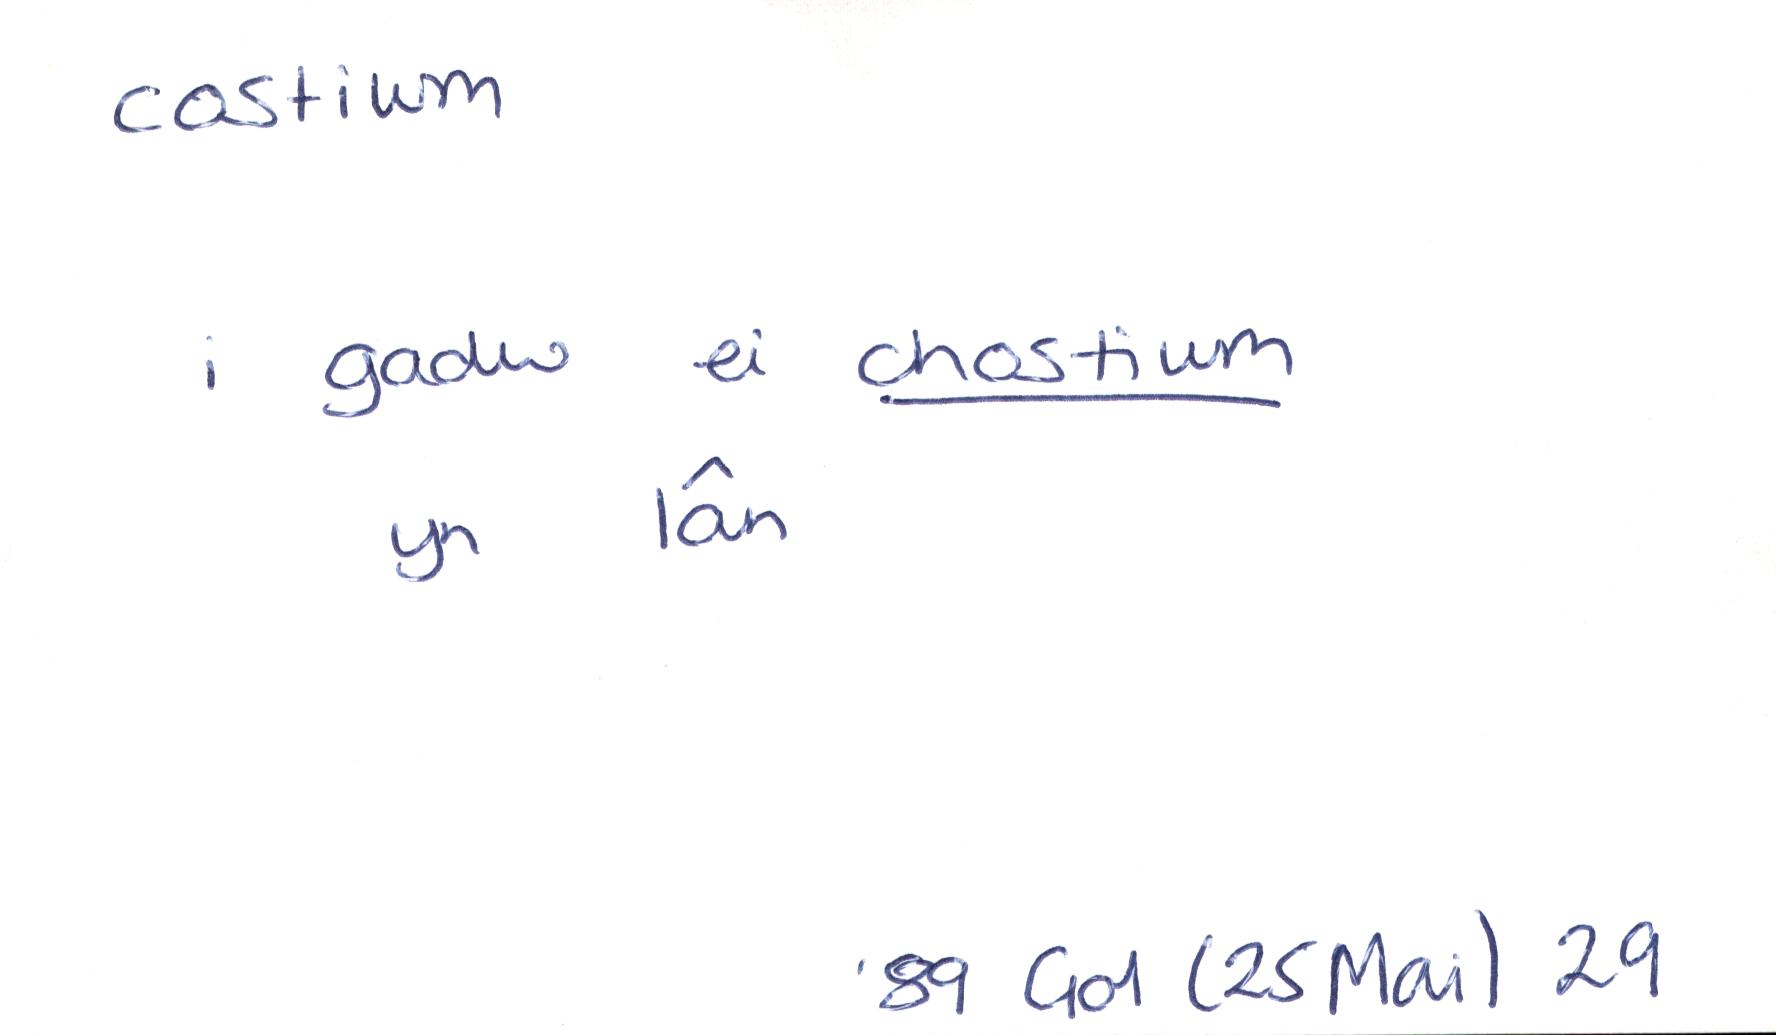 costiwm
i gadw ei chostiwm
yn lân
'89 Gol (25 Mai) 29